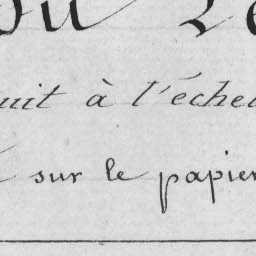 uit à l'éche
sur le papier